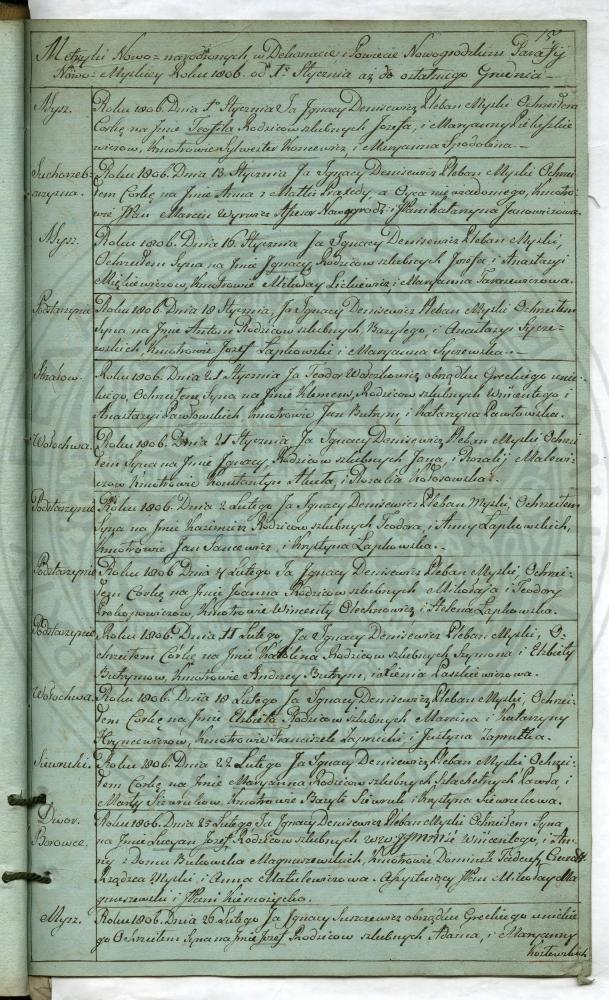 15
Metryki Nowo-narodzonych w Dekanacie i Powiecie Nowogrodzkim Parafij
Nowo-Myskiey Roku 1806. od 1º Stycznia aż do ostatniego Grudnia
Mysz. Roku 1806. Dnia 1º Stycznia Ja Jgnacy Denisewicz Pleban Myski Ochrciłem
Corkę na Jmie Teofila Rodzicow szlubnych Jozefa, i Maryanny
wiczow, Kmotrowie Sylwester Koncewicz, i Maryanna
Suchorzeb- Roku 1806. Dnia 13 Stycznia Ja Jgnacy Denisewicz Pleban Myski Ochrci-
łem Corkę na Jmie Anna z Matki a Oyca niewiadomego, Kmotro-
wie JPan Marcin i JPani Katarzyna Janowiczowa
Mysz. Roku 1806. Dnia 16. Stycznia Ja Jgnacy Denisewicz Pleban Myski,
Ochrciłem Syna na Jmie Jgnacy, Rodzicow szlubnych Jozefa i Anastazyi
Kmotrowie Mikołay i Maryanna Tararewiczowa.
Podstarzynie Roku 1806. Dnia 18 Stycznia, Ja Jgnacy Denisewicz Pleban Myski Ochrciłem
Syna na Jmie Antoni Rodzicow szlubnych, Bazylego, i Anastazyi Sycze-
wskich, Kmotrowie Jozef Łapkowski i Maryanna Syczewska.
Roku 1806. Dnia 21 Stycznia Ja Teodor obrządku Greckiego unic-
kiego, Ochrciłem Syna na Jmie Klemens, Rodzicow szlubnych Wincentego i
Anastazyi Pawłowskich Kmotrowie Jan Butrym, i Katarzyna Pawłowska.
Wołochwa. Roku 1806. Dnia 21 Stycznia Ja Jgnacy Denisewicz Pleban Myski Ochrci-
łem Syna na Jmie Jgnacy, Rodzicow szlubnych Jana, i Rozalij Malewi-
czow Kmotrowie Konstantyn i Rozalia
Podstarzynie Roku 1806. Dnia 2 Lutego Ja Jgnacy Denisewicz Pleban Myski, Ochrciłem
Syna na Jmie Kazimierz Rodzicow szlubnych Teodora, i Anny Łapkowskich,
Kmotrowie Jan Sancewicz, i Krystyna Łapkowska.
Podstarzynie Roku 1806 Dnia 4 Lutego Ja Jgnacy Denisewicz Pleban Myski, Ochrci-
łem Corkę na Jmie Joanna Rodzicow szlubnych Mikołaja i Teodory
Prokopowiczow, Kmotrowie Wincenty Olechnowicz i Helena Łapkowska.
Podstarzynie Roku 1806. Dnia 11 Lutego Ja Jgnacy Denisewicz Pleban Myski, O-
chrciłem Corkę na Jmie Karolina Rodzicow szlubnych Szymona i Elżbiety
Butrymow, Kmotrowie Andrzey Butrym, i Xienia Paszkiewiczowa.
Wołochwa. Roku 1806. Dnia 18 Lutego Ja Jgnacy Denisewicz Pleban Myski, Ochrci-
łem Corkę na Jmie Elżbieta Rodzicow szlubnych Marcina i Katarzyny
Hryncewiczow, Kmotrowie Franciszek i Justyna
Siewruki. Roku 1806. Dnia 22 Lutego Ja Jgnacy Denisewicz Pleban Myski Ochrci-
łem Corkę na Jmie Maryanna Rodzicow szlubnych Szlachetnych Pawła i
Marty Siewrukow, Kmotrowie Bazyli Siewruk i Krystyna Siewrukowa.
Dwor. Roku 1806. Dnia 25 Lutego Ja Jgnacy Denisewicz Pleban Myski Ochrciłem Syna
Borowce. na Jmie Lucyan Jozef Rodzicow szlubnych Wincentego, i An-
ny z Domu Bukowska Magnuszewskich, Kmotrowie Dominik Tadeusz
Rządzca Myski, i Anna Matulewiczowa. Assystujący JPan Mikołay Ma-
gnuszewski i JPani Kiernożycka.
Mysz. Roku 1806. Dnia 26 Lutego Ja Jgnacy Suszczewicz obrządku Greckiego unickie-
go Ochrciłem Syna na Jmie Jozef Rodzicow szlubnych Adama, i Maryanny
Kozłowskich